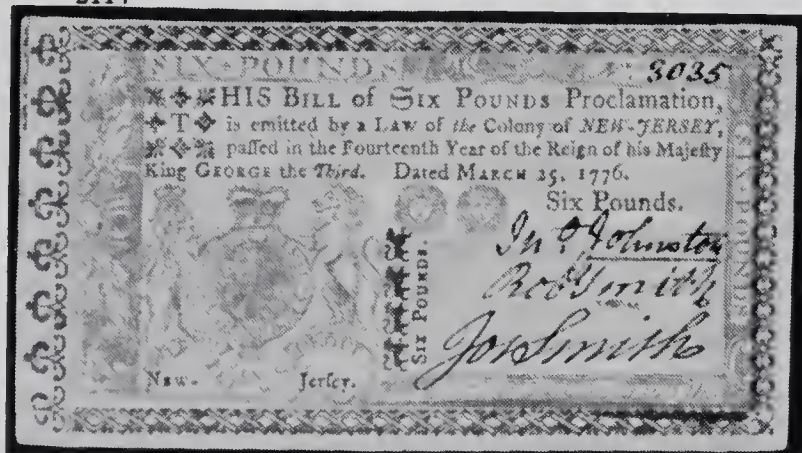 SIX POUNDS 3035
THIS BILL of SIX POUNDS Proclamation,
is emitted by a LAW of the Colony of NEW-JERSEY,
paſſed in the Fourteenth Year of the Reign of his Majeſty
King GEORGE the Third. Dated MARCH 25, 1776.
Six Pounds.
Jnº. Johnston
Robt Smith
Jos Smith
SIX POUNDS.
New-Jerſey.
SIX POUNDS